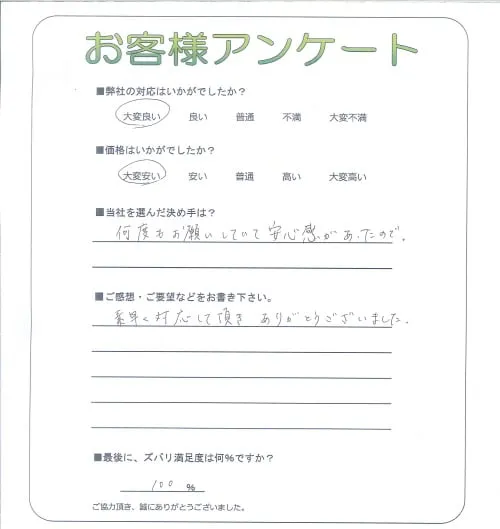 お客様アンケート
■弊社の対応はいかがでしたか？
大変良い 良い 普通 不満 大変不満
■価格はいかがでしたか？
大変安い 安い 普通 高い 大変高い
■当社を選んだ決め手は？
何度もお願いしていて安心感があったので。
■ご感想・ご要望などをお書き下さい。
素早く対応して頂きありがとうございました。
■最後に、ズバリ満足度は何％ですか？
100 ％
ご協力頂き、誠にありがとうございました。